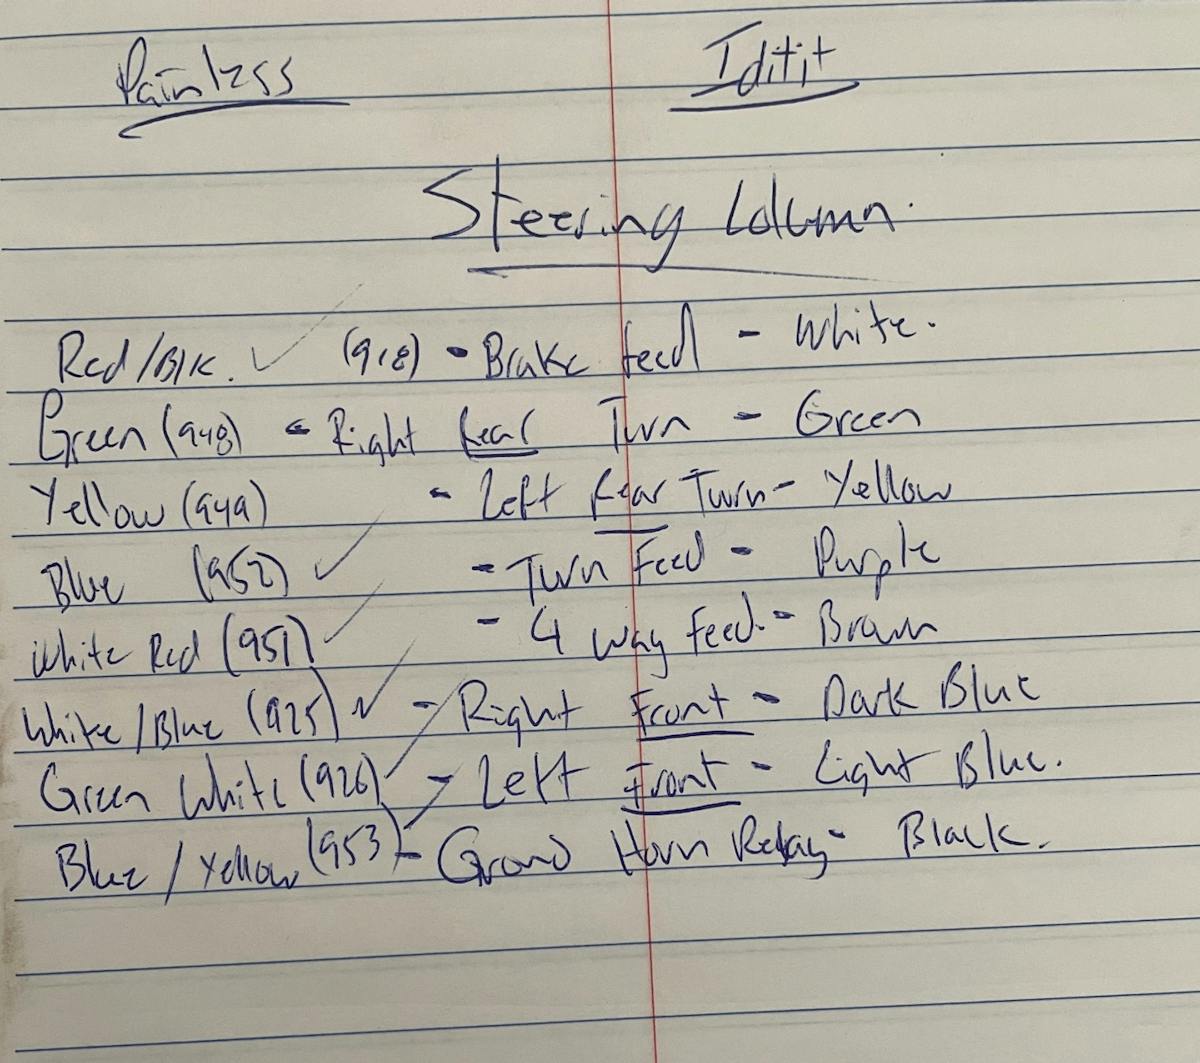 Painless Iditit
Steering Column.
Red/Blk. ✓ (918) - Brake feed - White.
Green (948) - Right Rear Turn - Green
Yellow (949) - Left Rear Turn - Yellow
Blue (952) ✓ - Turn Feed - Purple
White Red (951) ✓ - 4 Way Feed. - Brown
White/Blue (925) ✓ - Right Front - Dark Blue
Green White (926) ✓ - Left Front - Light Blue.
Blue/Yellow (953) ✓ - Ground Horn Relay - Black.